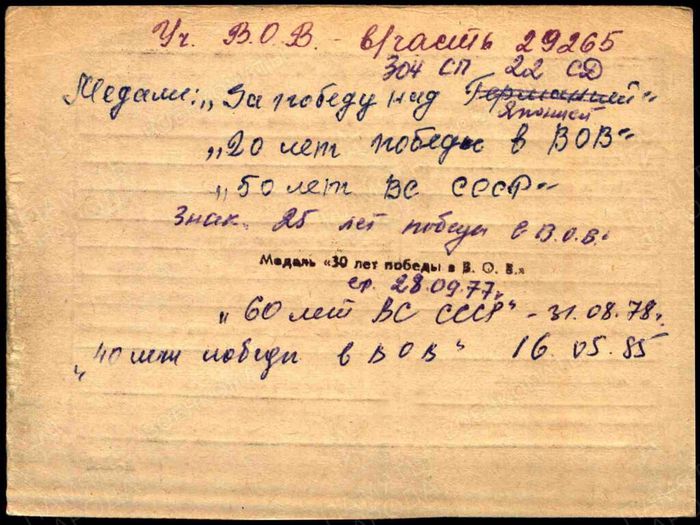 Уч. В.О.В. - в/часть 29265
304 СП 22 СД
Медали: „За победу над Германией"
Японией
„20 лет победы в ВОВ"
„50 лет ВС СССР"
Знак. 25 лет победы в В.О.В.
Медаль «30 лет победы в В. О. В.»
28.09.77г.
„60 лет ВС СССР" - 31.08.78г.
„40 лет победы в ВОВ" 16.05.85